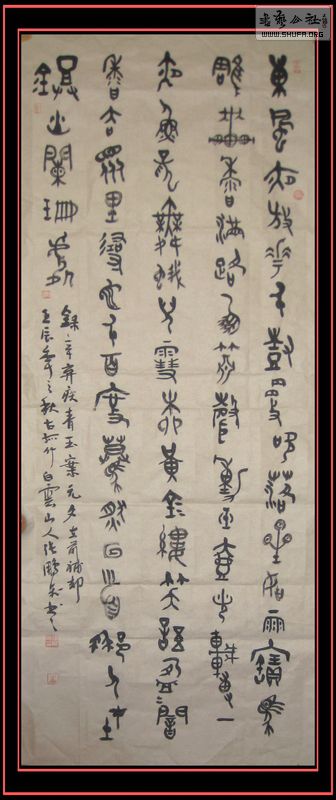 書藝公社
WWW.SHUFA.ORG
東風夜放花千樹更吹落星如雨寶馬
雕車香滿路鳳簫聲動壺光轉一
夜魚龍舞蛾兒雪柳黃金縷笑語盈暗
香去眾里尋他千百度驀然回首那人在
燈火闌珊處
錄辛棄疾青玉案元夕在前補卻
壬辰年之秋白雲山人張鵬書